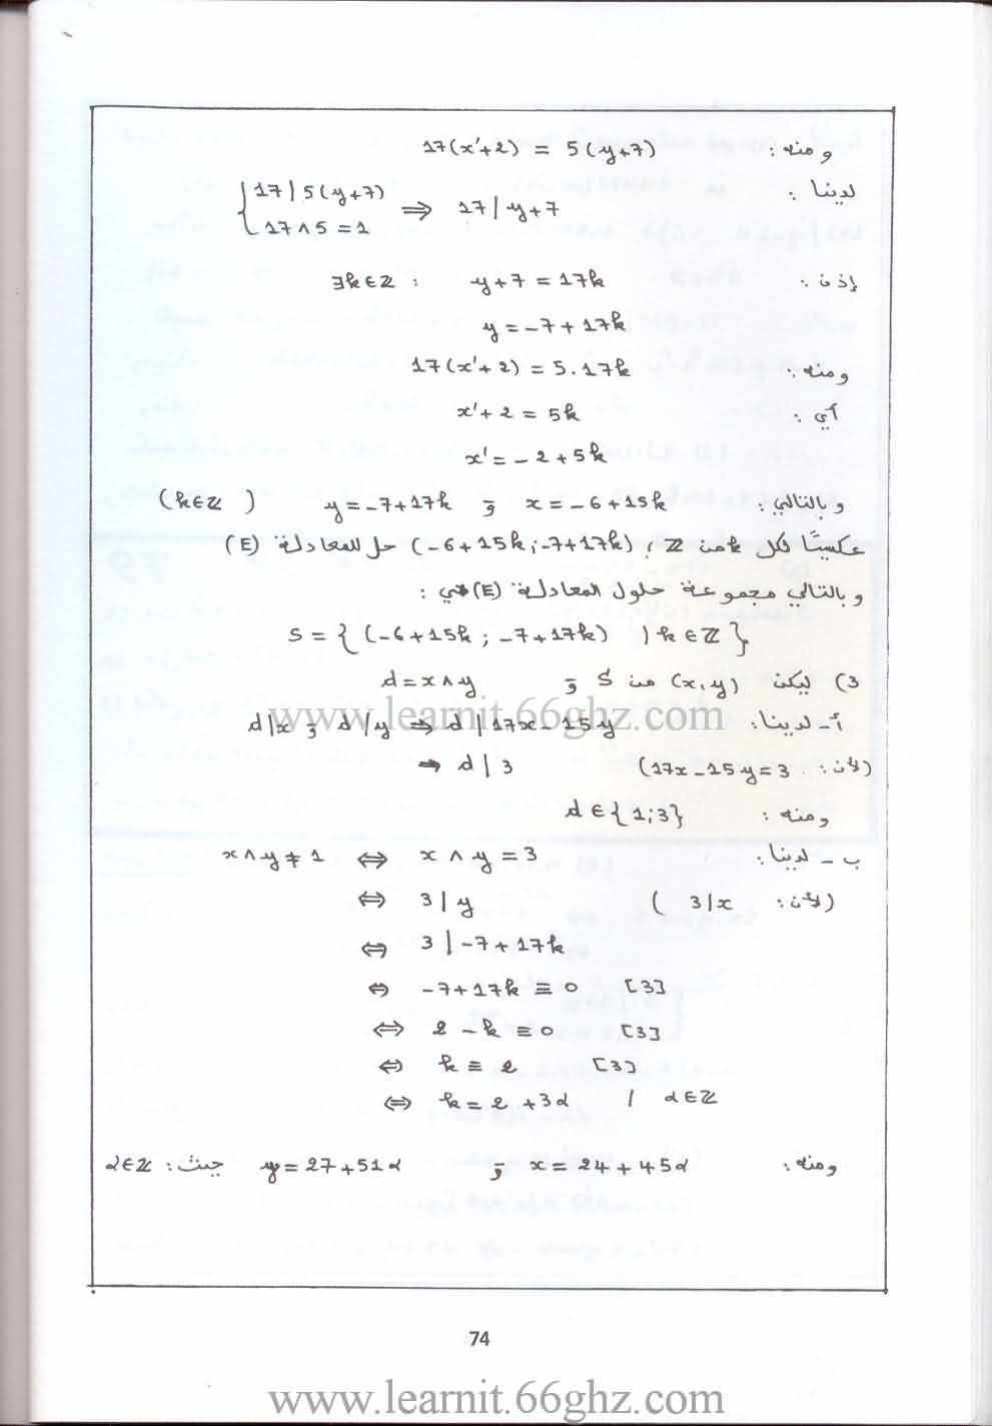 ومنه : 17(x'+2) = 5(y+7)
لدينا : { 17 | 5(y+7) ⇒ 17 | y+7
17 ∧ 5 = 1
إذن : ∃k∈ℤ : y+7 = 17k
y = -7+17k
ومنه : 17(x'+2) = 5.17k
أي : x'+2 = 5k
x' = -2+5k
وبالتالي : x = -6+15k و y = -7+17k (k∈ℤ)
عكسيًا لكل k من ℤ ، (-6+15k ; -7+17k) حل للمعادلة (E)
وبالتالي مجموعة حلول المعادلة (E) هي :
S = { (-6+15k ; -7+17k) / k∈ℤ }
3) ليكن (x,y) من S و d = x∧y
أ- لدينا : d|x و d|y ⇒ d | 17x-15y
(لأن : 17x-15y=3) ⇒ d | 3
ومنه : d ∈ {1;3}
ب - لدينا : x∧y ≠ 1 ⇔ x∧y = 3
(لأن : 3|x) ⇔ 3 | y
⇔ 3 | -7+17k
⇔ -7+17k ≡ 0 [3]
⇔ 2-k ≡ 0 [3]
⇔ k ≡ 2 [3]
⇔ k = 2+3α / α∈ℤ
ومنه : x = 24+45α و y = 27+51α حيث : α∈ℤ
74
www.learnit.66ghz.com
www.learnit.66ghz.com